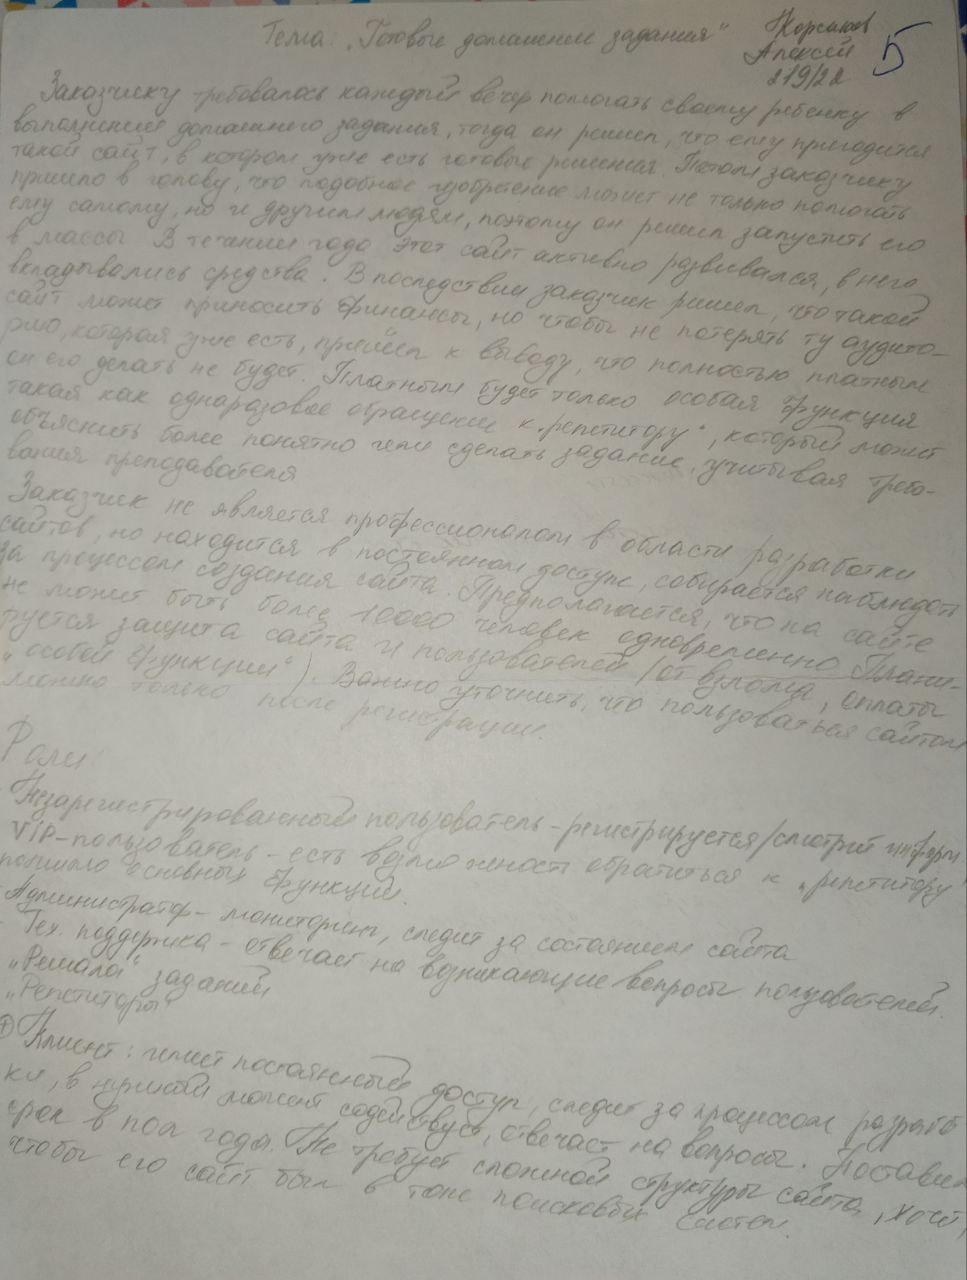 Тема: „Готовые домашние задания"
Корсаков
Алексей
219/22
5
Заказчику требовалось каждый вечер помогать своему ребенку в
выполнении домашнего задания, тогда он решил, что ему пригодится
такой сайт, в котором уже есть готовые решения. Потом заказчику
пришло в голову, что подобное изобретение может не только помогать
ему самому, но и другим людям, поэтому он решил запустить его
в массы. В течении года этот сайт активно развивался, в него
вкладывались средства. В последствии заказчик решил, что такой
сайт может приносить финансы, но чтобы не потерять ту аудито-
рию, которая уже есть, пришёл к выводу, что полностью платным
он его делать не будет. Платным будет только особая функция
такая как одноразовое обращение к „репетитору", который может
объяснить более понятно или сделать задание, учитывая требо-
вания преподавателя
Заказчик не является профессионалом в области разработки
сайтов, но находится в постоянном доступе, собирается наблюдать
за процессом создания сайта. Предполагается, что на сайте
не может быть более 10000 человек одновременно. Плани-
руется защита сайта и пользователей (от взлома, оплаты
„особой функции"). Важно уточнить, что пользоваться сайтом
можно только после регистрации.
Роли:
Незарегистрированный пользователь - регистрируется/смотрит информ.
VIP-пользователь - есть возможность обратиться к „репетитору"
помимо основных функций.
Администратор - мониторинг, следит за состоянием сайта
Тех. поддержка - отвечает на возникающие вопросы пользователей.
„Решала" заданий
„Репетиторы"
Клиент: имеет постоянный доступ, следит за процессом разработ
ки, в нужный момент содействует, отвечает на вопросы. Поставил
срок в пол года. Не требует сложной структуры сайта, хочет,
чтобы его сайт был в топе поисковых систем.